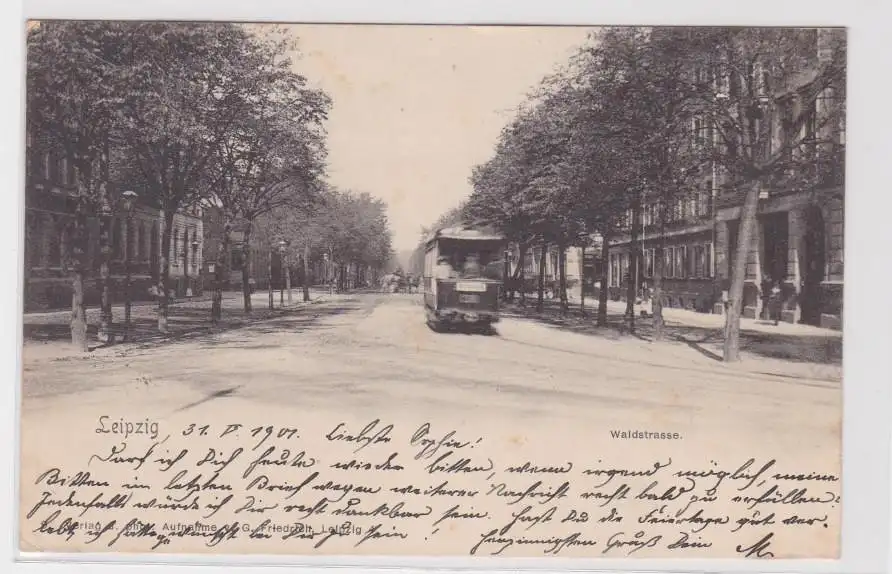 Leipzig, 31. V. 1901. Liebste Sophie!
Waldstrasse.
Darf ich Dich heute wieder bitten, wenn irgend möglich, meine
Bitten im letzten Brief wegen weiterer Nachricht recht bald zu erfüllen!
Jedenfalls würde ich Dir recht dankbar sein. Hast Du die Feiertage gut ver-
lebt, ich hätte gewünscht bei Dir zu sein!
Verlag u. phot. Aufnahme v. G. Friedrich, Leipzig
herzinnigsten Gruß Dein M